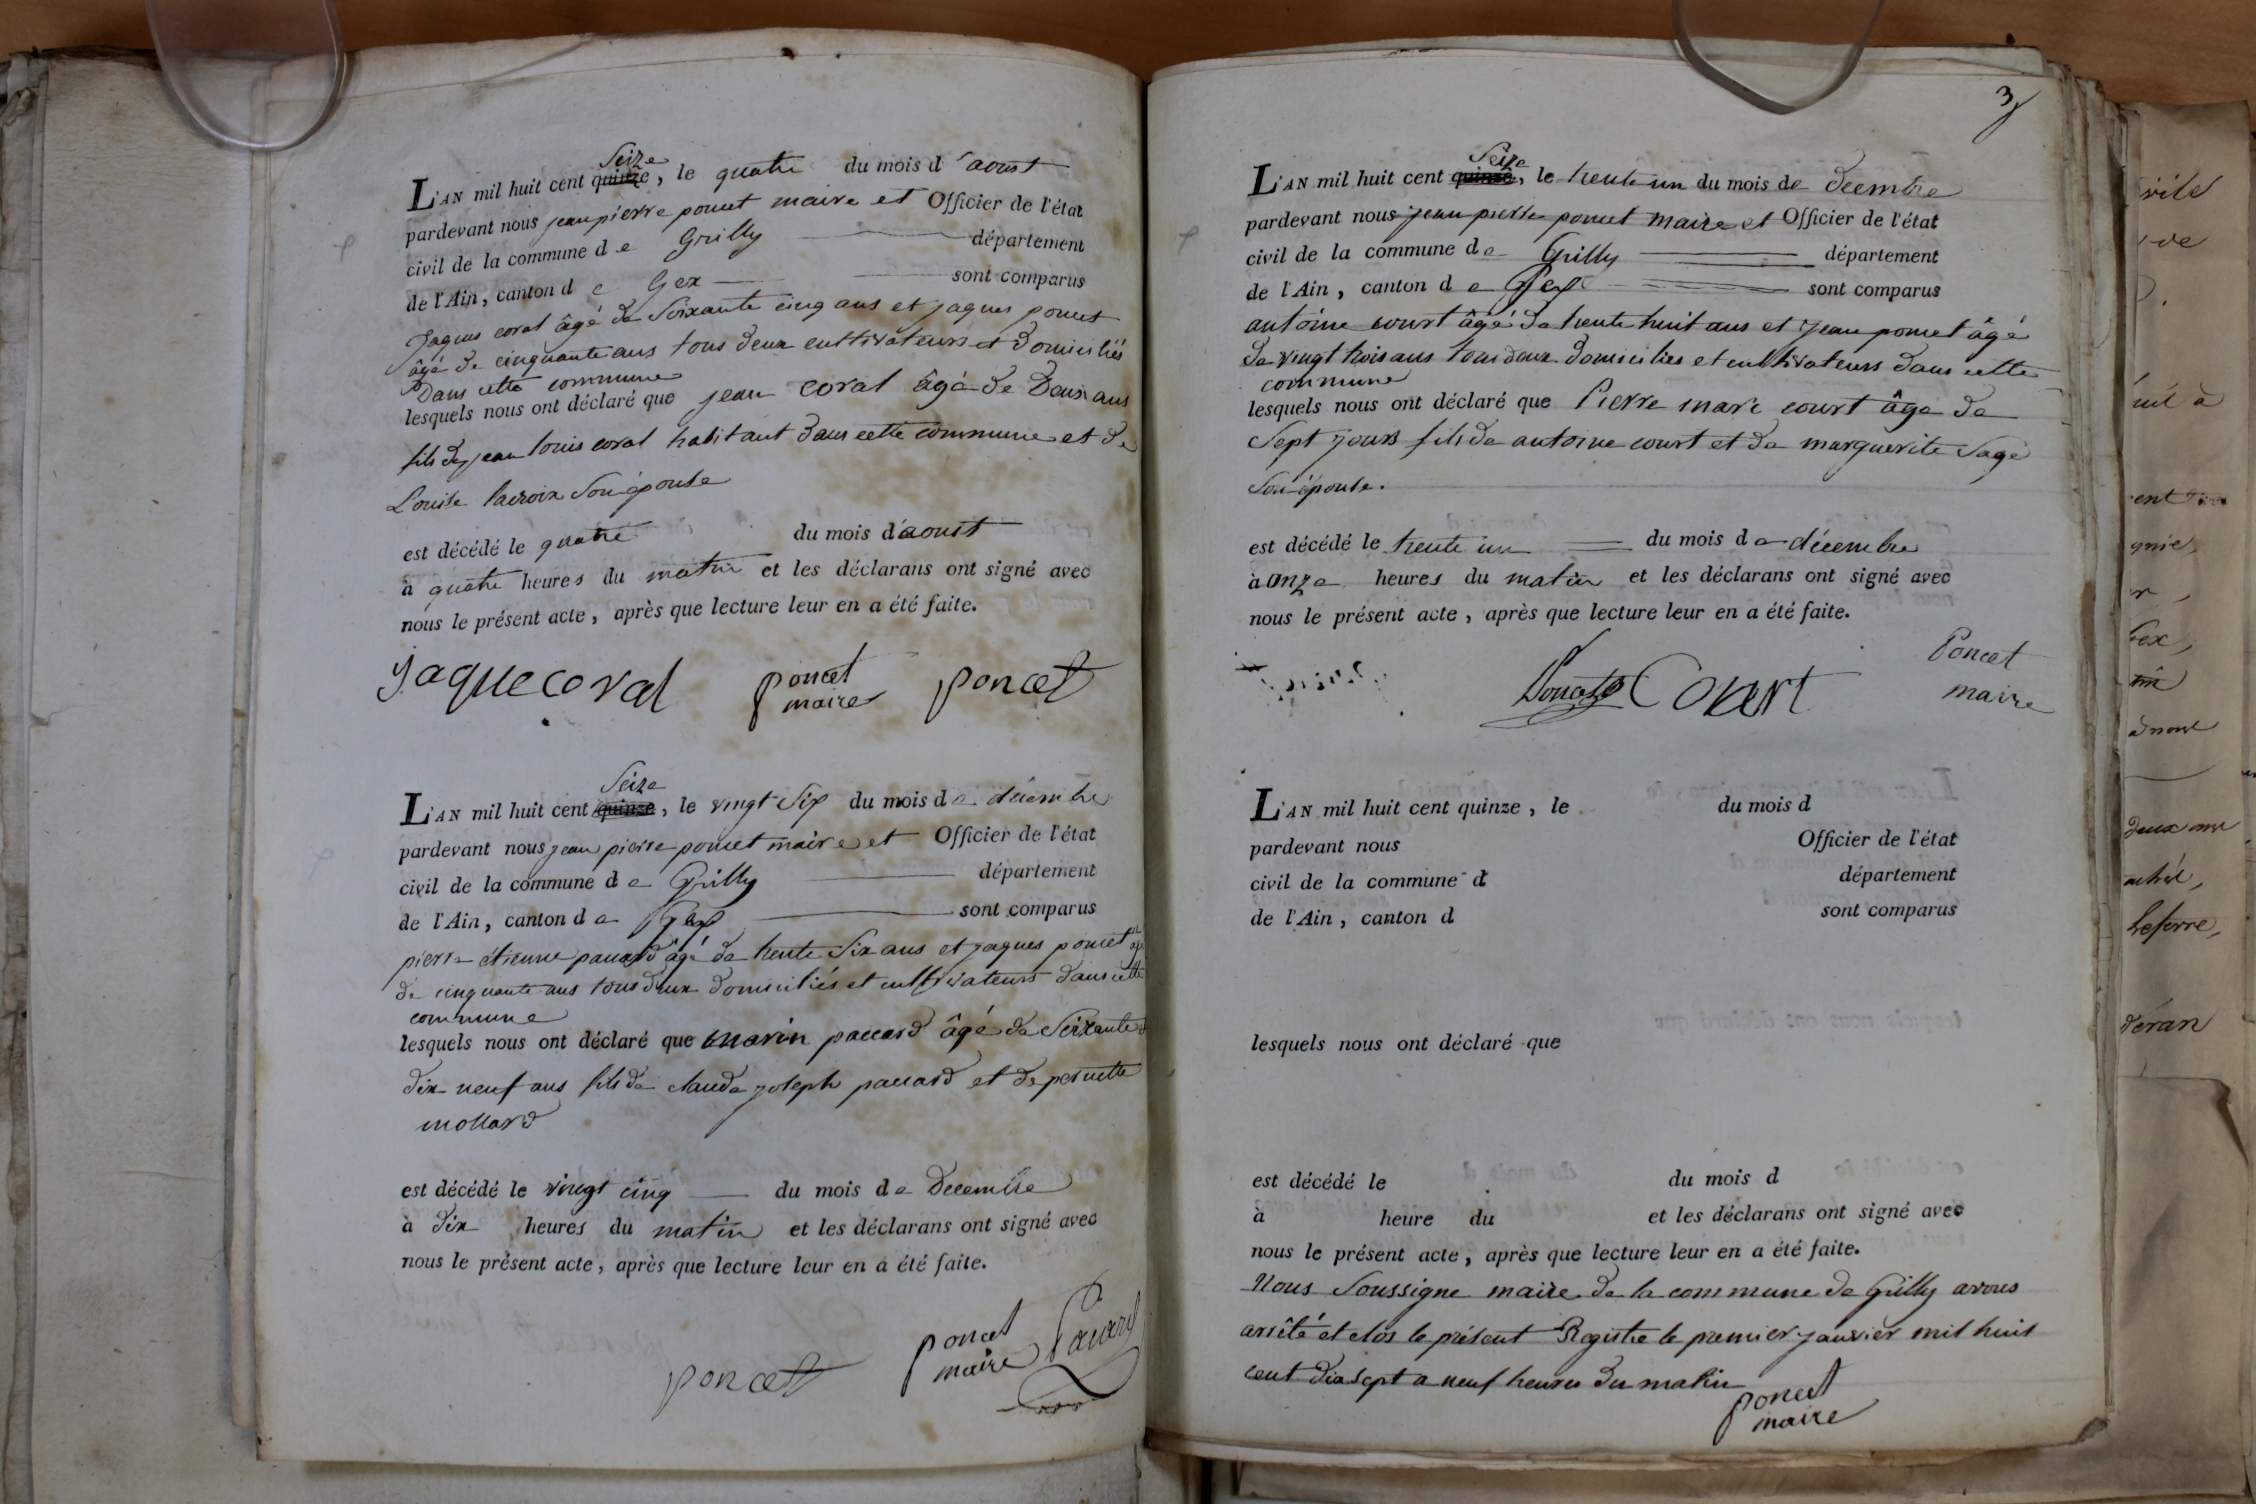 Seize
L'AN mil huit cent quinze, le quatre du mois d'aoust
pardevant nous jean pierre poncet maire et Officier de l'état
civil de la commune de Grilly département
de l'Ain, canton de Gex sont comparus
Jaques coral âgé de Soixante cinq ans et jaques poncet
âgé de cinquante ans tous deux cultivateurs et domiciliés
Dans cette commune
lesquels nous ont déclaré que jean coral âgé de Deux ans
fils de jean louis coral habitant dans cette commune et de
Louise lacroix Son épouse
est décédé le quatre du mois d'aoust
à quatre heures du matin et les déclarans ont signé avec
nous le présent acte, après que lecture leur en a été faite.
Jaque coral poncet maire poncet
Seize
L'AN mil huit cent quinze, le vingt Six du mois de décembre
pardevant nous jean pierre poncet maire et Officier de l'état
civil de la commune de Grilly département
de l'Ain, canton de Gex sont comparus
pierre étienne paccard âgé de trente Six ans et jaques poncet âgé
de cinquante ans tous deux domiciliés et cultivateurs dans cette
commune
lesquels nous ont déclaré que marin paccard âgé de Soixante
dix neuf ans fils de claude joseph paccard et de pernette
mollard
est décédé le vingt cinq du mois de Decembre
à dix heures du matin et les déclarans ont signé avec
nous le présent acte, après que lecture leur en a été faite.
poncet poncet maire
3
Seize
L'AN mil huit cent quinze, le trente un du mois de decembre
pardevant nous jean pierre poncet maire et Officier de l'état
civil de la commune de Grilly département
de l'Ain, canton de Gex sont comparus
antoine court âgé de trente huit ans et jean poncet âgé
de vingt trois ans tous deux domiciliés et cultivateurs dans cette
commune
lesquels nous ont déclaré que Pierre marc court âgé de
Sept jours fils de antoine court et de marguerite Sage
Son épouse.
est décédé le trente un du mois de décembre
à onze heures du matin et les déclarans ont signé avec
nous le présent acte, après que lecture leur en a été faite.
Poncet Court Poncet maire
L'AN mil huit cent quinze, le du mois d
pardevant nous Officier de l'état
civil de la commune d département
de l'Ain, canton d sont comparus
lesquels nous ont déclaré que
est décédé le du mois d
à heure du et les déclarans ont signé avec
nous le présent acte, après que lecture leur en a été faite.
Nous Soussigne maire de la commune de Grilly avons
arrêté et clos le présent Registre le premier janvier mil huit
cent dix sept a neuf heures du matin
poncet
maire